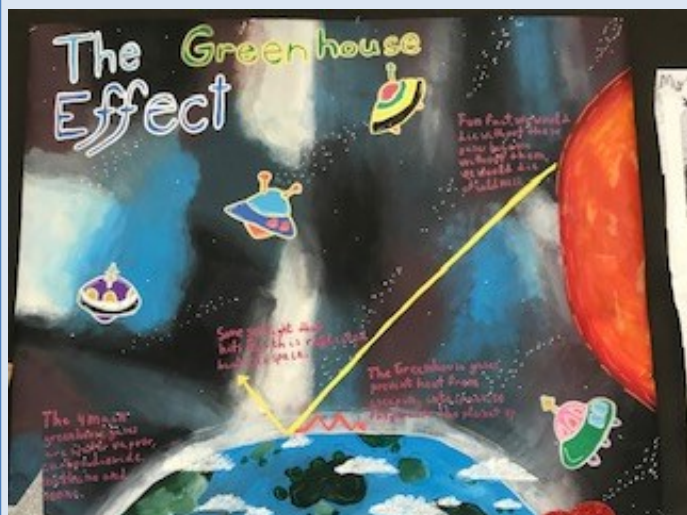 The Greenhouse
Effect
Fun fact we would
die without these
gases because
without them,
we would die
of coldness
Some sunlight that
hits Earth is reflected
back to space.
The Greenhouse gases
prevent heat from
escaping, into
the planet
The 4 main
greenhouse gases
are water vapor,
carbon dioxide,
methane and
ozone.